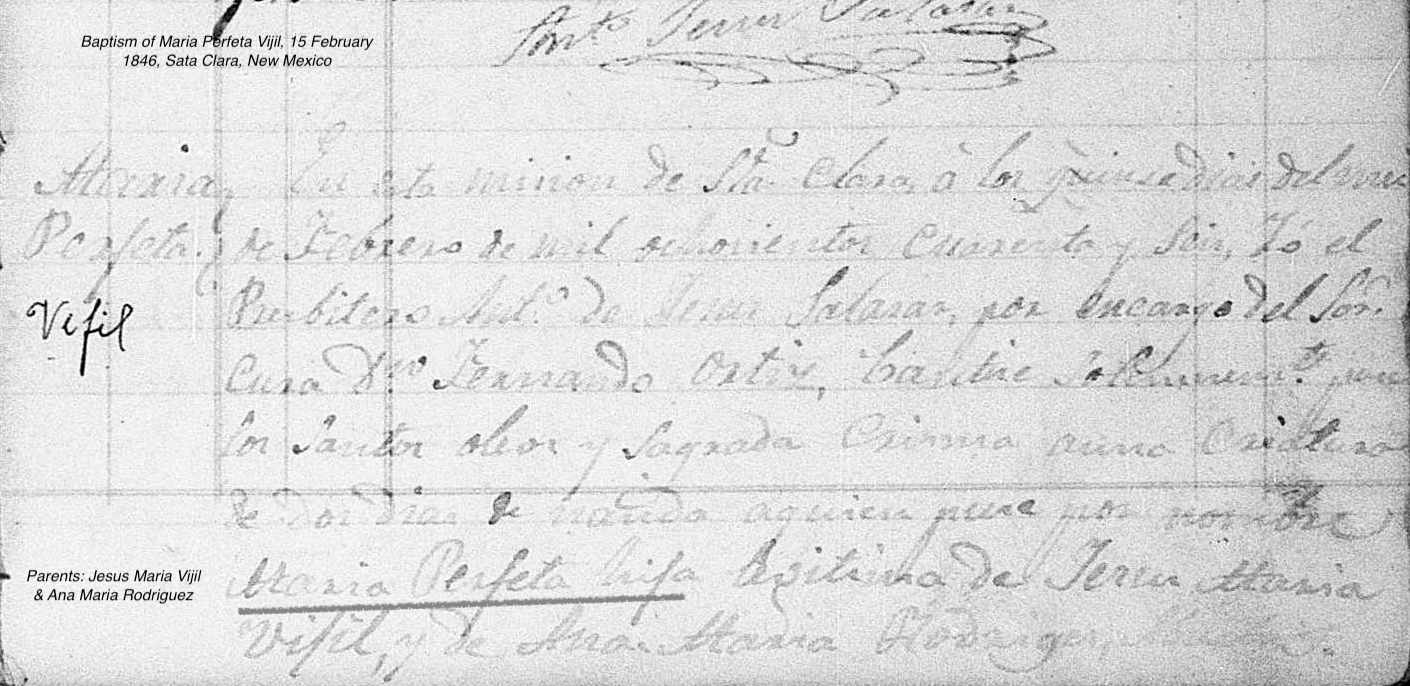 Anto. Jesus Salasar
Baptism of Maria Perfeta Vijil, 15 February
1846, Sata Clara, New Mexico
Maria
Perfeta.
Vijil
En esta mision de Sta. Clara, á los quinse dias del mes
de Febrero de mil ochosientos cuarenta y seis, Yó el
Presbitero Anto. de Jesus Salasar, por encargo del Sor.
Cura Dn. Fernando Ortiz, bautise solemnemte. puse
los santos oleos y sagrada Crisma auna Criatura
de dos dias de nasida aquien puse por nombre
Maria Perfeta hija lexitima de Jesus Maria
Vijil, y de Ana Maria Rodriges,
Parents: Jesus Maria Vijil
& Ana Maria Rodriguez